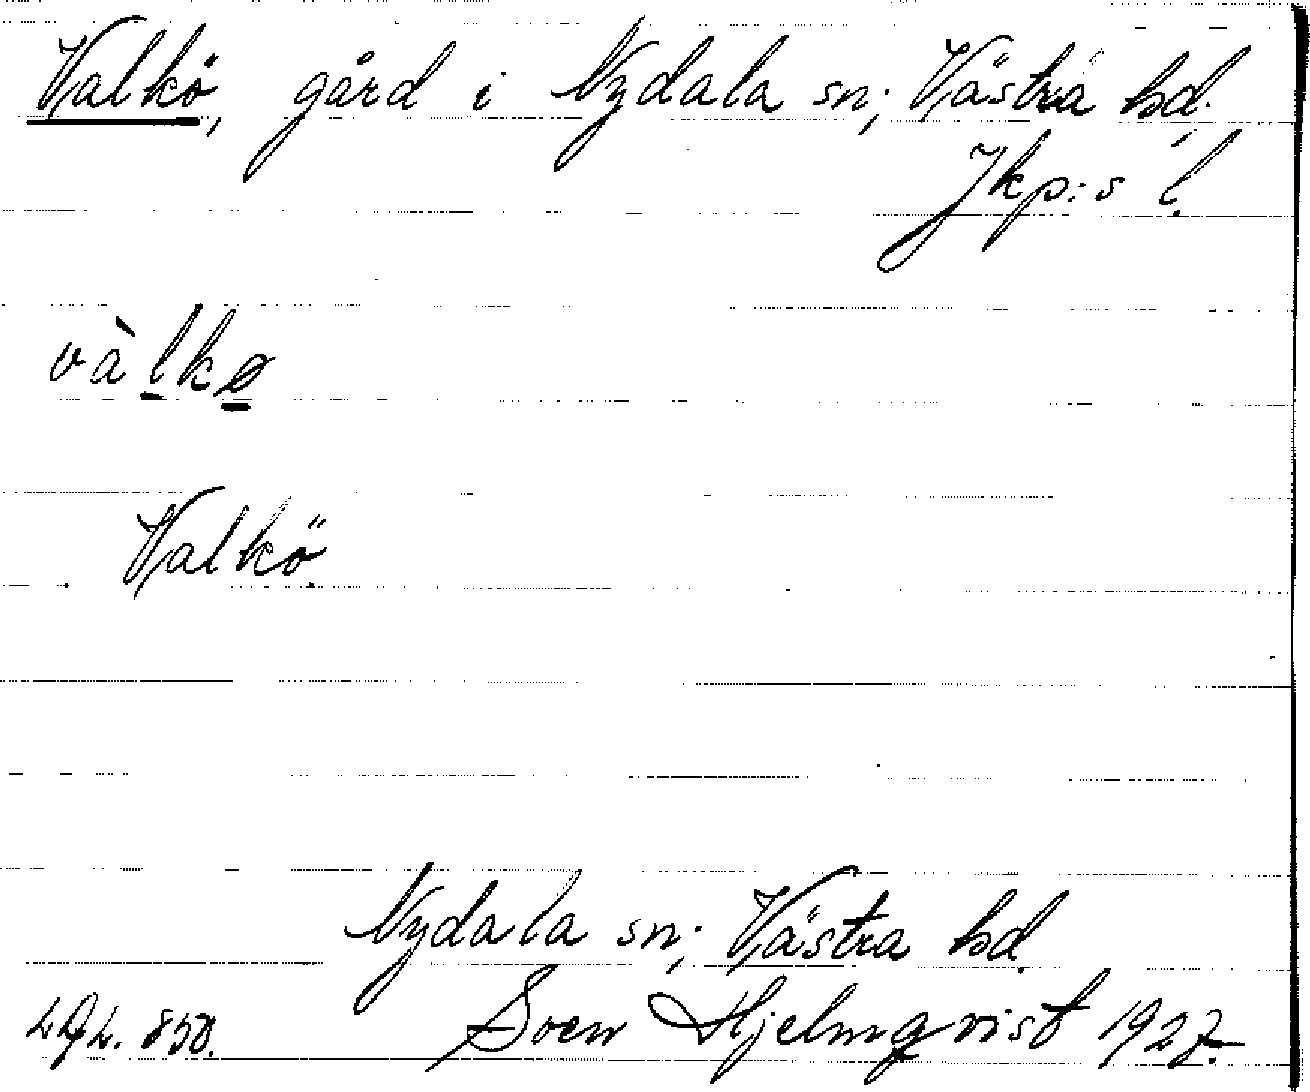 Valkö, gård i Nydala sn; Västra hd.
Jkp:s l.
vàlkø
Valkö
Nydala sn; Västra hd
850. Sven Hjelmqvist 1927.